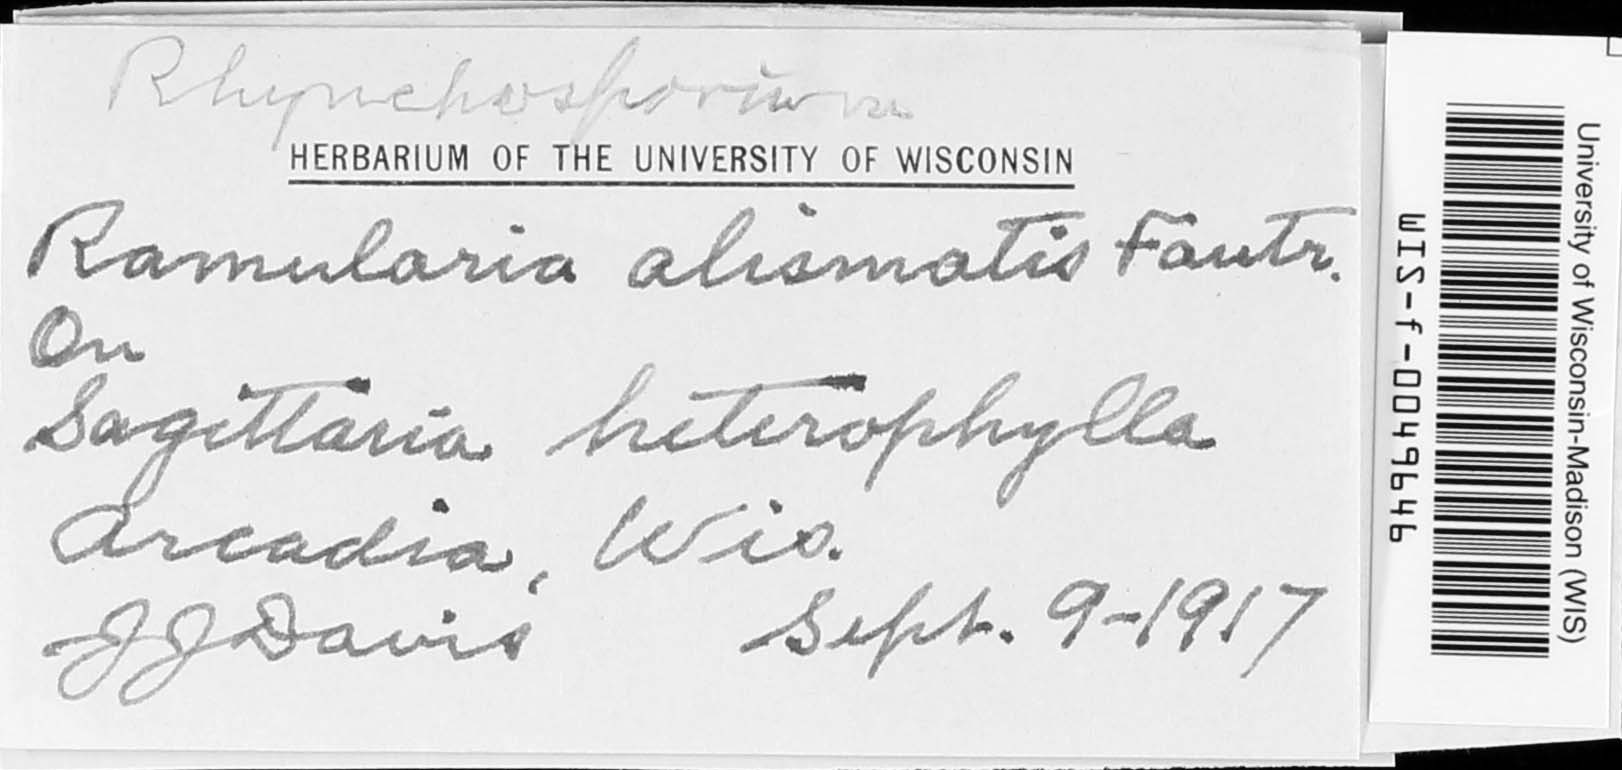 Rhynchosporium
HERBARIUM OF THE UNIVERSITY OF WISCONSIN
Ramularia alismatis Fautr.
On
Sagittaria heterophylla
Arcadia, Wis.
JJDavis Sept. 9-1917
University of Wisconsin-Madison (WIS)
WIS-f-0049646